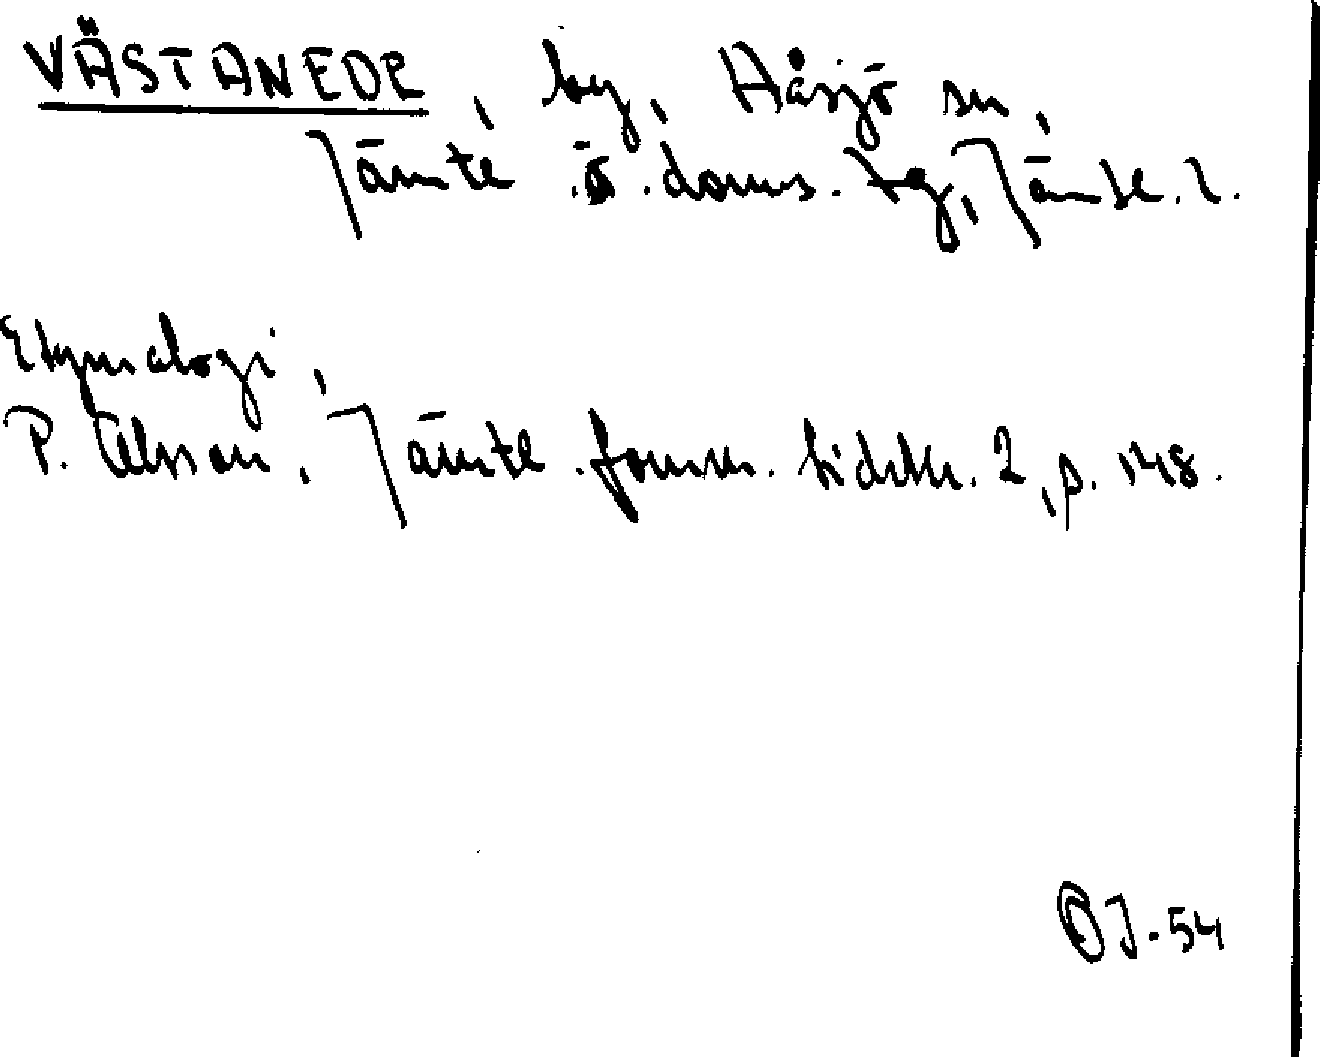 VÄSTANEDE, by, Håsjö sn,
Jämtl. ö. doms. tg, Jämtl. l.
Etymologi,
P. Olsson, Jämtl. fornm. tidskr. 2, p. 148.
OJ-54